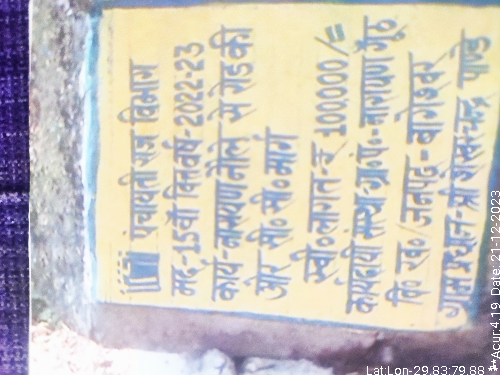 पंचायती राज विभाग
मद-15वाँ वित्त वर्ष-2022-23
कार्य-नारायण नौले से रोड की
ओर सी० सी० मार्ग
स्वी० लागत-रू 100,000/=
कार्यदायी संस्था-ग्रा० पं०-नारायण गूँठ
वि० ख०/जनपद-बागेश्वर
ग्राम प्रधान-श्री शेखर चन्द्र पाण्डे
Lat:Lon-29.83:79.88
**Acur:4.19 Date: 21-12-2023